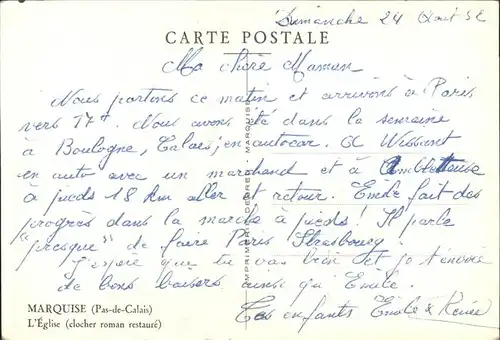 Dimanche 24 Août 52
CARTE POSTALE
Ma chère Maman
Nous partons ce matin et arrivons à Paris
vers 17h. Nous avons été dans la semaine
à Boulogne, Calais, en autocar. A Wissant
en auto avec un marchand et à Ambleteuse
à pieds 18 km aller et retour. Emile fait des
progrès dans la marche à pieds! Il parle
"presque" de faire Paris Strasbourg.
J'espère que tu vas bien et je t'envoie
de bons baisers ainsi qu'Emile.
Tes enfants Emile & Renée
MARQUISE (Pas-de-Calais)
L'Église (clocher roman restauré)
IMPRIMERIE MARQUISE